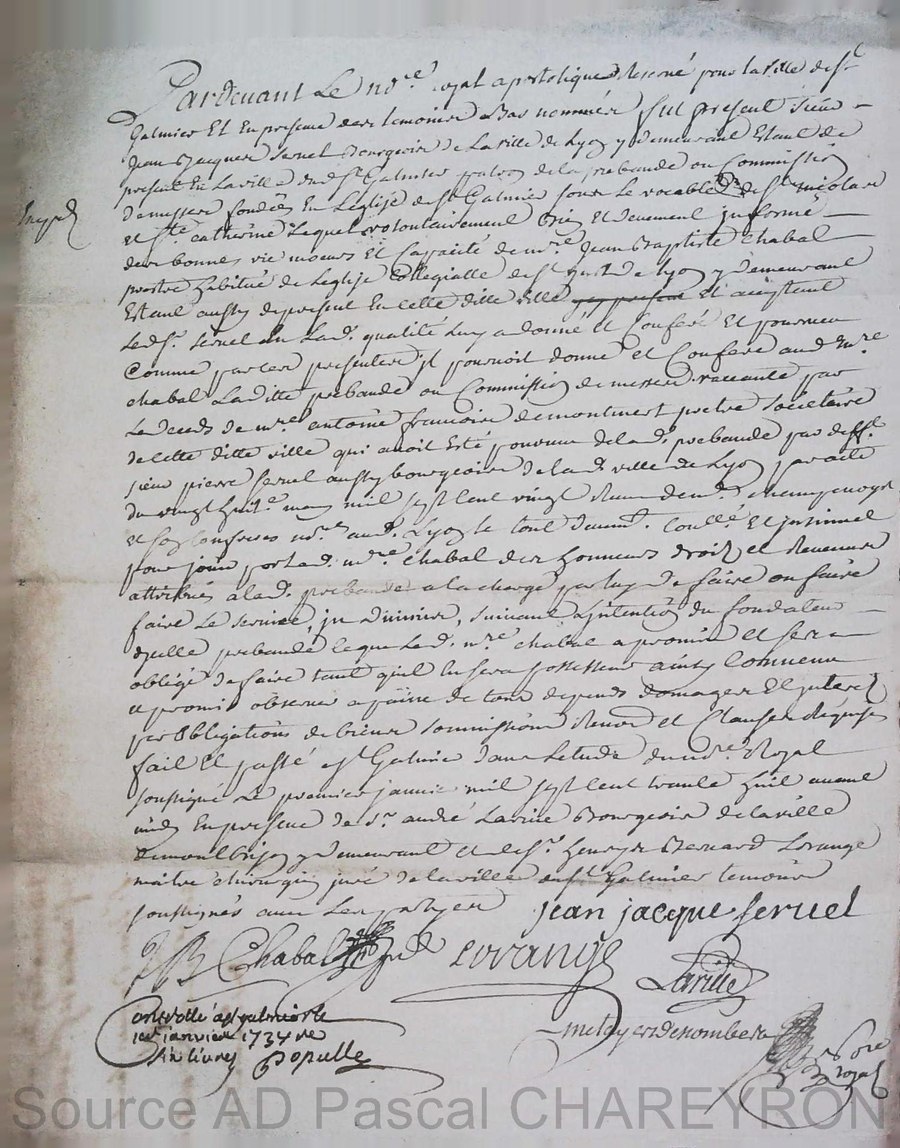 Pardevant Le no.re Royal apostolique Reservé pour la ville de St
Galmier Et En presence des temoins Bas nommés fut present Sieur
Jean Jacques Servel Bourgeois de La ville de Lyon y demeurant Estant de
present En La ville dud. St Galmier patron de la prebande ou Commission
de messes fondées En L'eglise de St Galmier sous le vocable de St nicolas
et Ste catherine Lequel volontairement Bien et deuement informé
des bonnes vie moeurs Et Capacité de m.re Jean Baptiste Chabal
prestre habitué de L'eglise Collegialle de St Just de Lyon y demeurant
Estant aussy de present En cette ditte ville Et acceptant
Led. Sr. Servel En Lad. qualité Luy a donné et Conferé Et pourveu
Comme par ces presentes Il pourvoit donne et Confere aud. m.re
chabal Laditte prebande ou Commission de messes vaccante par
Le deceds de m.re antoine françois de montmert pretre Societaire
de cette ditte ville qui avoit Esté pourveu de lad. prebande par deff.t
sieur pierre Servel aussy bourgeois de lad. ville de Lyon par acte
du vingt huit.e may mil sept cent vingt
et son confrere no.res aud. Lyon le tout deuem.t Contr.lé et insinué
pour jouir par led. m.re Chabal des honneurs droits et Revenus
attribués a lad. prebande a la charge par luy de faire ou faire
faire Le service, in divinis, suivant L'intention du fondateur
d'ycelle prebande ce que Led. m.re chabal a promis et sera
obligé de faire tant qu'il en sera possesseur ainsy Convenu
et promis observer a paine de tous depends domages Et interets
par Obligations de biens soumissions Renon.ns et Clauses Requises
fait Et passé a St Galmier dans L'etude du no.re Royal
soussigné Le premier janvier mil sept cent trente huit avant
midy En presence de Sr. andré Laville Bourgeois de la ville
de montbrison y demeurant et de Sr. henrys Bernard Lorange
maitre chirurgien juré de la ville de St Galmier temoins
soussignés avec Les partyes jean jacque servel
JB Chabal ptre Lorange
Laville
Controllé a St galmier le
1er janvier 173
six livres Populle
no.re
royal
Inspd
Source AD Pascal CHAREYRON